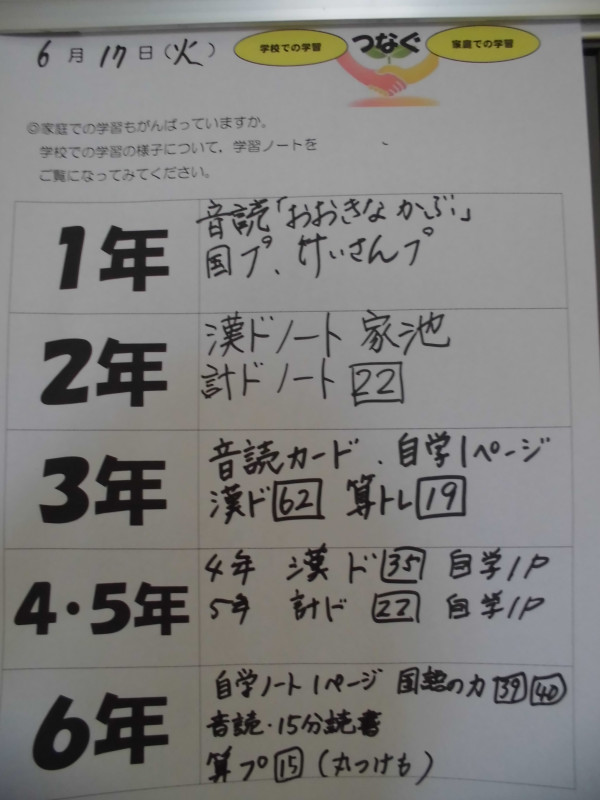 6月17日(火)
学校での学習 つなぐ 家庭での学習
◎家庭での学習もがんばっていますか。
学校での学習の様子について，学習ノートを
ご覧になってみてください。
1年
音読「おおきなかぶ」
国プ、けいさんプ
2年
漢ドノート 家池
計ドノート 22
3年
音読カード、自学1ページ
漢ド62 算トレ19
4・5年
4年 漢ド35 自学1P
5年 計ド22 自学1P
6年
自学ノート1ページ 国語の力 39 40
音読・15分読書
算プ15(丸つけも)